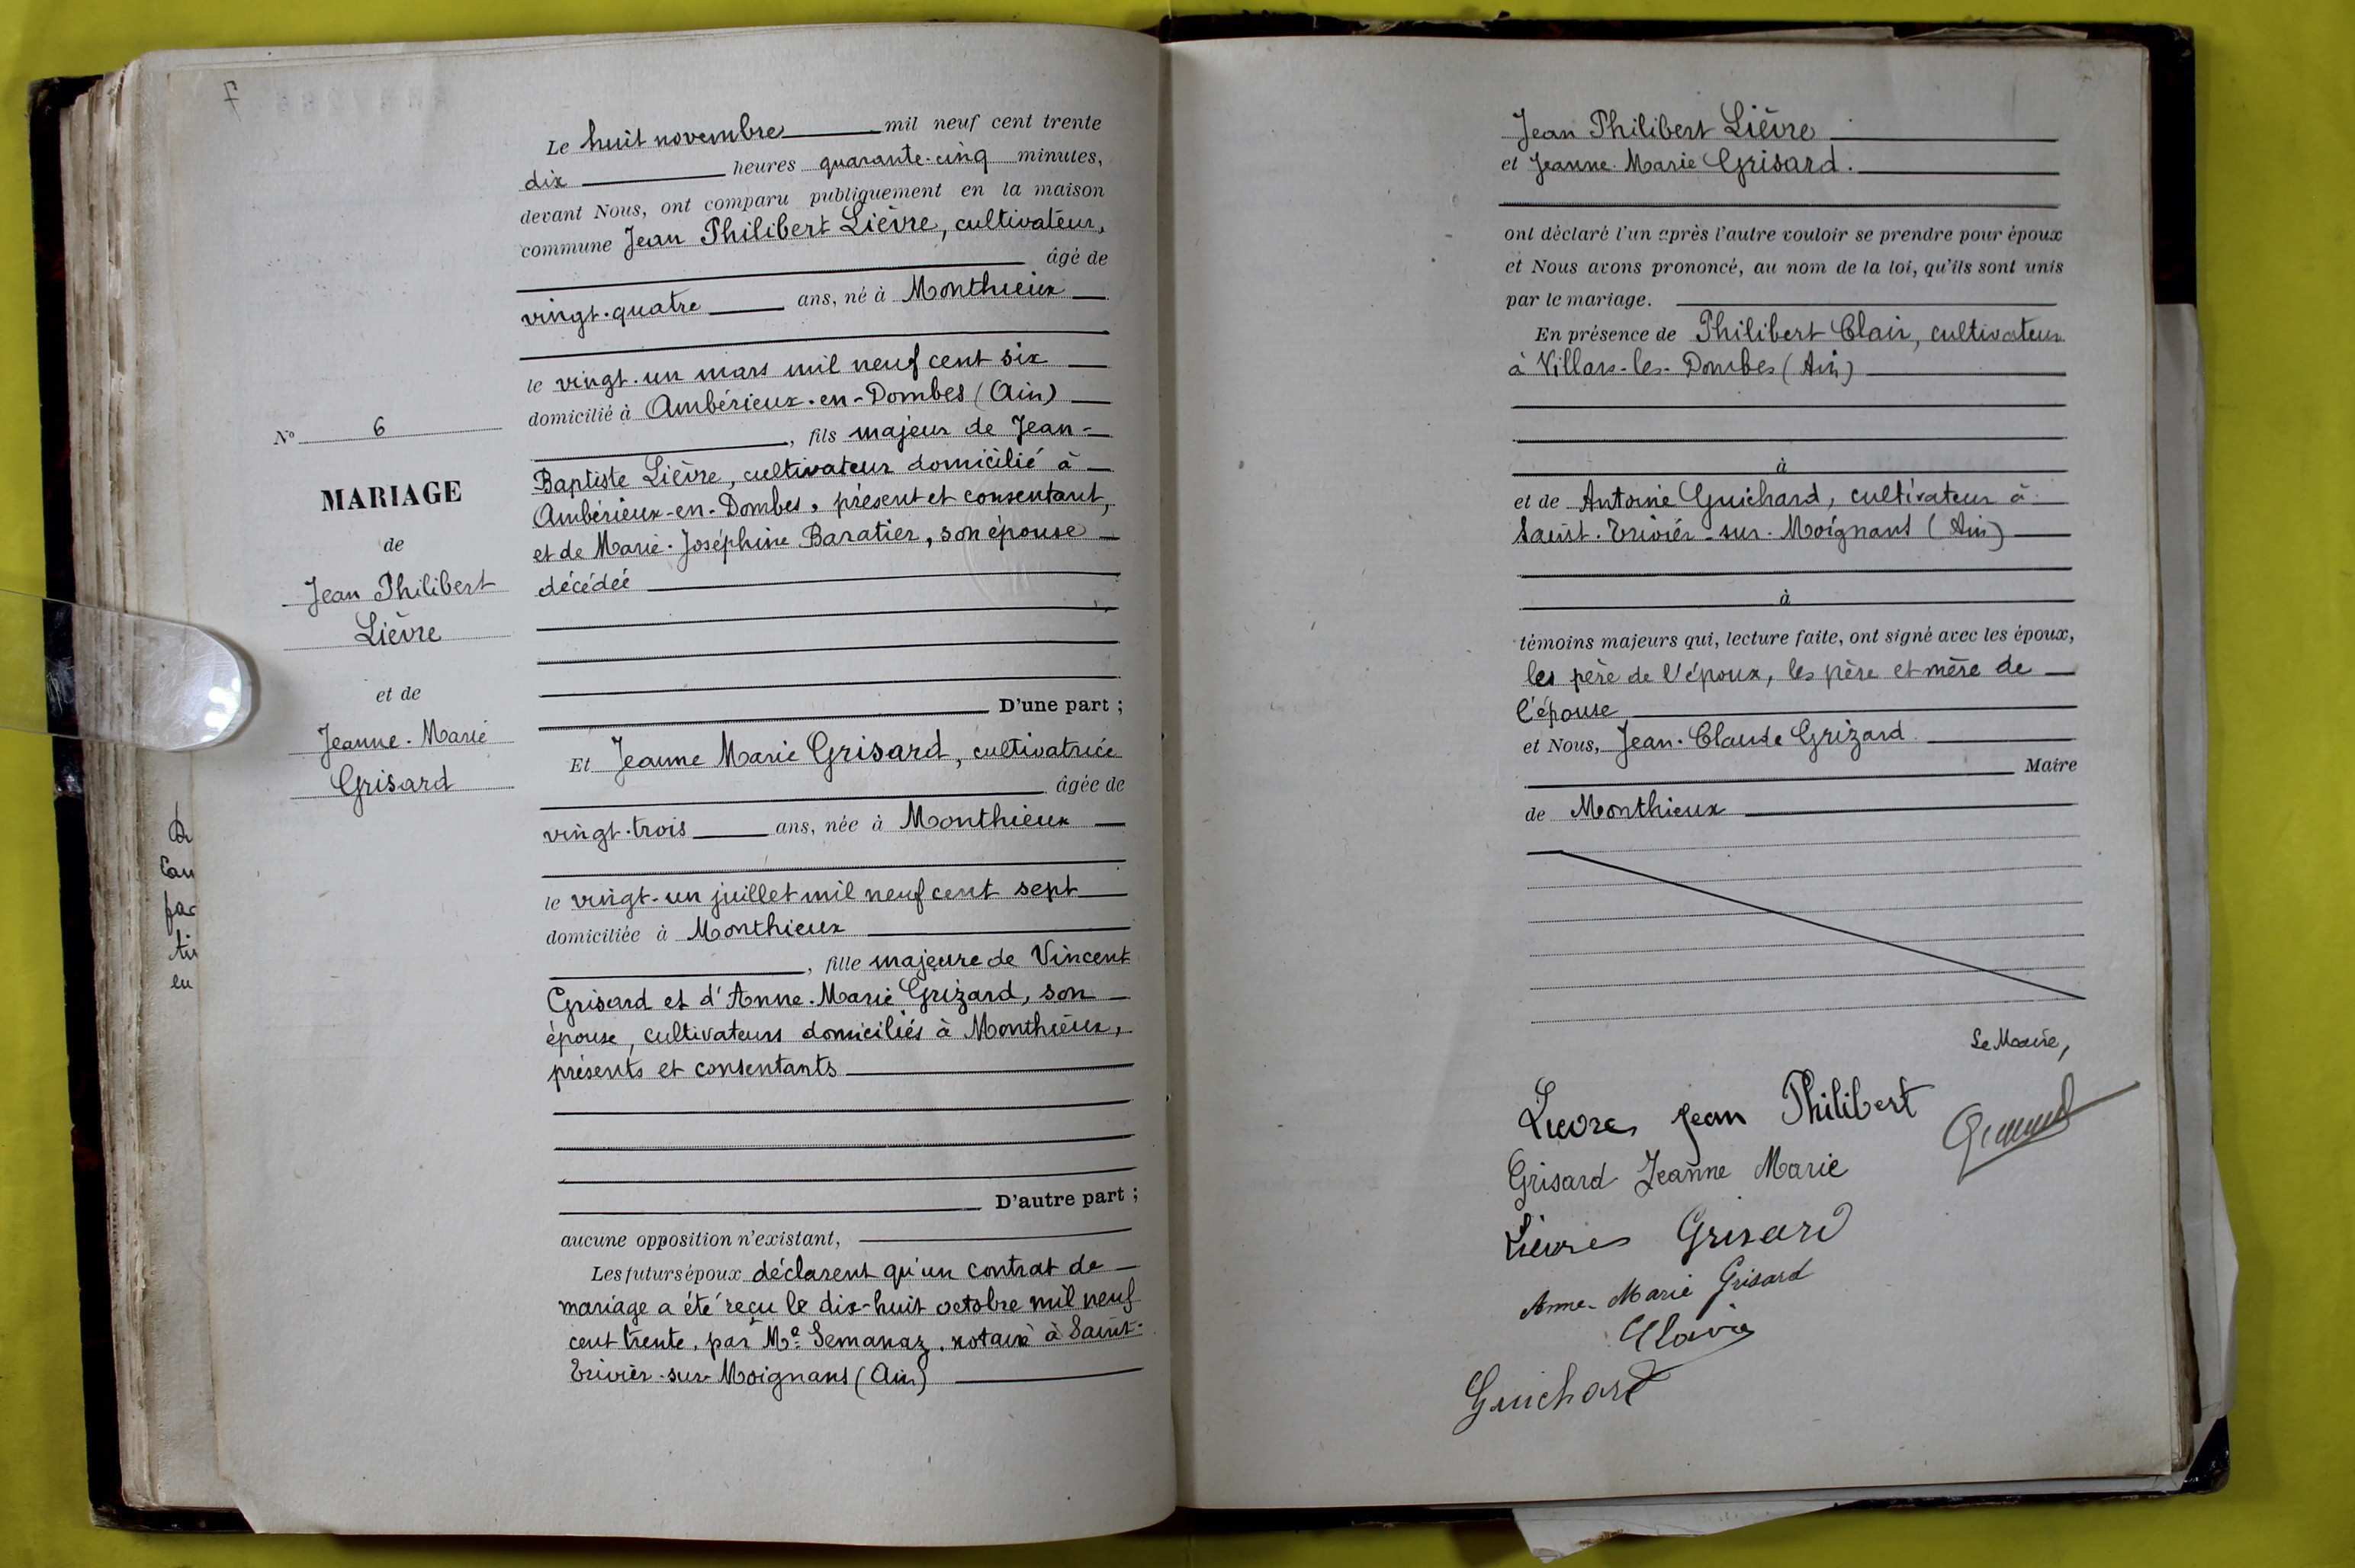 7
Le huit novembre mil neuf cent trente
dix heures quarante-cinq minutes,
devant Nous, ont comparu publiquement en la maison
commune Jean Philibert Lièvre, cultivateur,
âgé de
vingt-quatre ans, né à Monthieux
le vingt-un mars mil neuf cent six
domicilié à Ambérieux-en-Dombes (Ain)
, fils majeur de Jean-
Baptiste Lièvre, cultivateur domicilié à
Ambérieux-en-Dombes, présent et consentant,
et de Marie-Joséphine Baratier, son épouse
décédée
D'une part ;
Et Jeanne Marie Grisard, cultivatrice
âgée de
vingt-trois ans, née à Monthieux
le vingt-un juillet mil neuf cent sept
domiciliée à Monthieux
, fille majeure de Vincent
Grisard et d'Anne-Marie Grizard, son
épouse, cultivateurs domiciliés à Monthieux,
présents et consentants
D'autre part ;
aucune opposition n'existant,
Les futurs époux déclarent qu'un contrat de
mariage a été reçu le dix-huit octobre mil neuf
cent trente, par Me Semanaz, notaire à Saint-
Trivier-sur-Moignans (Ain)
No 6
MARIAGE
de
Jean Philibert
Lièvre
et de
Jeanne-Marie
Grisard
Jean Philibert Lièvre
et Jeanne-Marie Grisard.
ont déclaré l'un après l'autre vouloir se prendre pour époux
et Nous avons prononcé, au nom de la loi, qu'ils sont unis
par le mariage.
En présence de Philibert Clair, cultivateur
à Villars-les-Dombes (Ain)
à
et de Antoine Guichard, cultivateur à
Saint-Trivier-sur-Moignans (Ain)
à
témoins majeurs qui, lecture faite, ont signé avec les époux,
les père de l'époux, les père et mère de
l'épouse
et Nous, Jean-Claude Grizard
Maire
de Monthieux
Le Maire,
Lievre Jean Philibert
Grisard Jeanne Marie
Lievre Grisard
Anne-Marie Grisard
Guichard